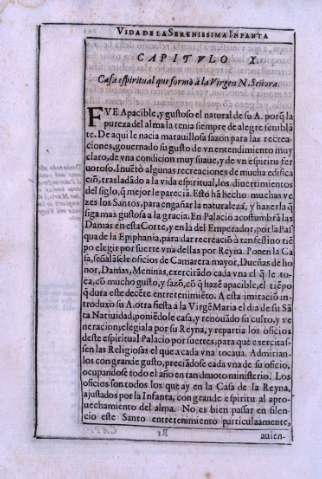 VIDA DE LA SERENISSIMA INFANTA
CAPITVLO X.
Casa espiritual que formò à la Virgen N. Señora.
FVE Apacible, y gustoso el natural de su A. porq̃ la
pureza del alma la tenia siempre de alegre semblã
te. De aqui le nacia marauillosa sazon para las recrea-
ciones, gouernado su gusto de vn entendimiento muy
claro, de vna condicion muy suaue, y de vn espiritu fer
uoroso. Inuẽtò algunas recreaciones de mucha edifica
ciõ, trasladãdo a la vida espiritual, los diuertimientos
del siglo, q̃ mejor le parecia. Esto hã hecho muchas ve
zes los Santos, para engañar la naturaleza, y hazerla q̃
siga mas gustosa a la gracia. En Palacio acostumbrã las
Damas en esta Corte, y en la del Emperador, por la Pas
qua de la Epiphania, para dar recreaciõ a tan festiuo tiẽ
po elegir por suerte vna de las por Reyna. Ponen la Ca
sa, señalãle oficios de Camarera mayor, Dueñas de ho
nor, Damas, Meninas, exercitãdo cada vna el q̃ le to-
ca, cõ mucho gusto, y sazõ, cõ q̃ hazẽ apacible, el tiẽ
po q̃ dura este decẽte entretenimiẽto. A esta imitaciõ in
troduxo su A. otra fiesta à la Virgẽ Maria el dia de su Sã
ta Natiuidad, poniẽdole casa, y renouãdo su culto, y ve
neracion, elegiala por su Reyna, y repartia los oficios
deste espiritual Palacio por suertes, para què exercitas-
sen las Religiosas el que a cada vna tocaua. Admitian-
los con grande gusto, preciãdose cada vna de su oficio,
ocupandose todo el año en tan deuoto ministerio. Los
oficios son todos los que ay en la Casa de la Reyna,
ajustados por la Infanta, con grande espiritu al apro-
uechamiento del alma. No es bien passar en silen-
cio este Santo entretenimiento particularmente,
auien-